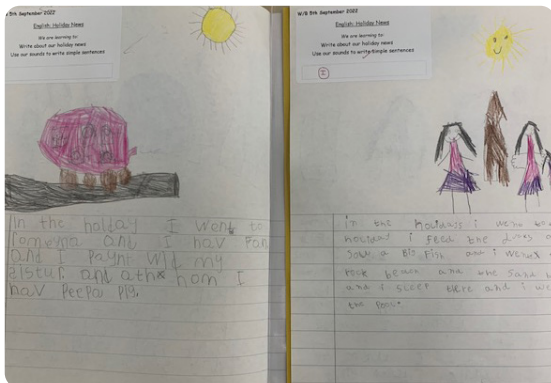 5th September 2022
English: Holiday News
We are learning to:
Write about our holiday news
Use our sounds to write simple sentences
In the holiday I went to
and I hav fan
and I paynt wid my
sistur and at hom I
hav Peepa Pig.
W/B 5th September 2022
English: Holiday News
We are learning to:
Write about our holiday news
Use our sounds to write simple sentences
in the holidays i went to
holiday i feed the
saw a Big Fish and i went
rock beach and the sand
and i sleep there and i we
the pool.